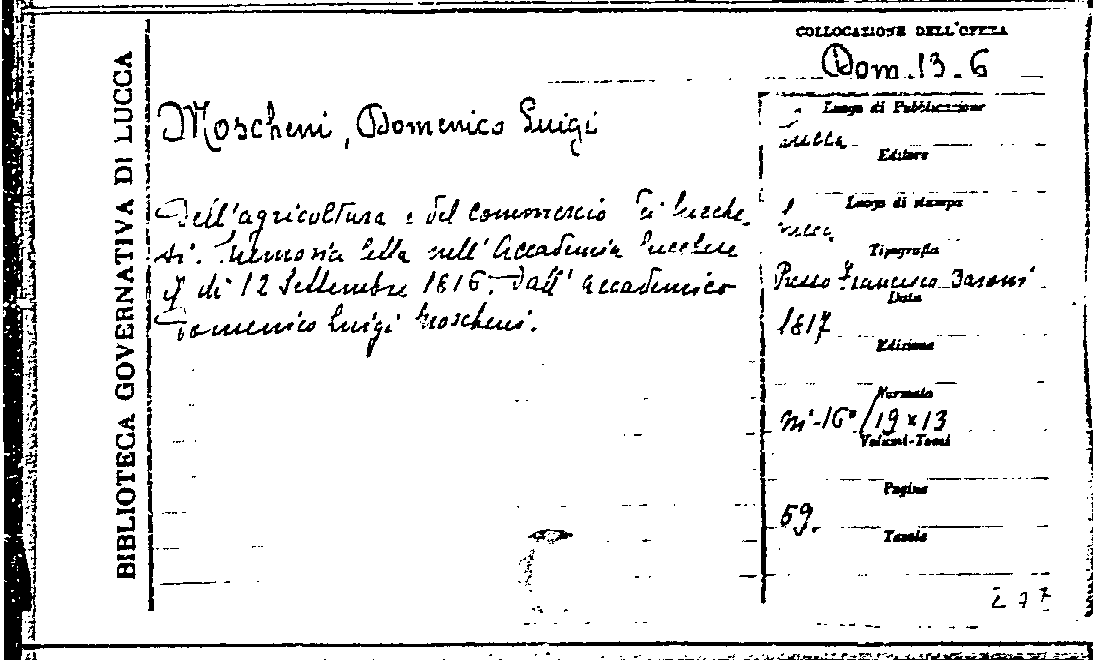 BIBLIOTECA GOVERNATIVA DI LUCCA
COLLOCAZIONE DELL'OPERA
Dom. 13. 6
Moscheni, Domenico Luigi
Dell'agricoltura e del commercio dei lucche-
si. Memoria letta nell'Accademia Lucchese
il dì 12 Settembre 1816. Dall'accademico
Domenico Luigi Moscheni.
Luogo di Pubblicazione
Lucca
Editore
Luogo di stampa
Lucca
Tipografia
Presso Francesco Baroni
Data
1817
Edizione
Formato
in-16° / 19 x 13
Volumi-Tomi
Pagine
59.
Tavole
277